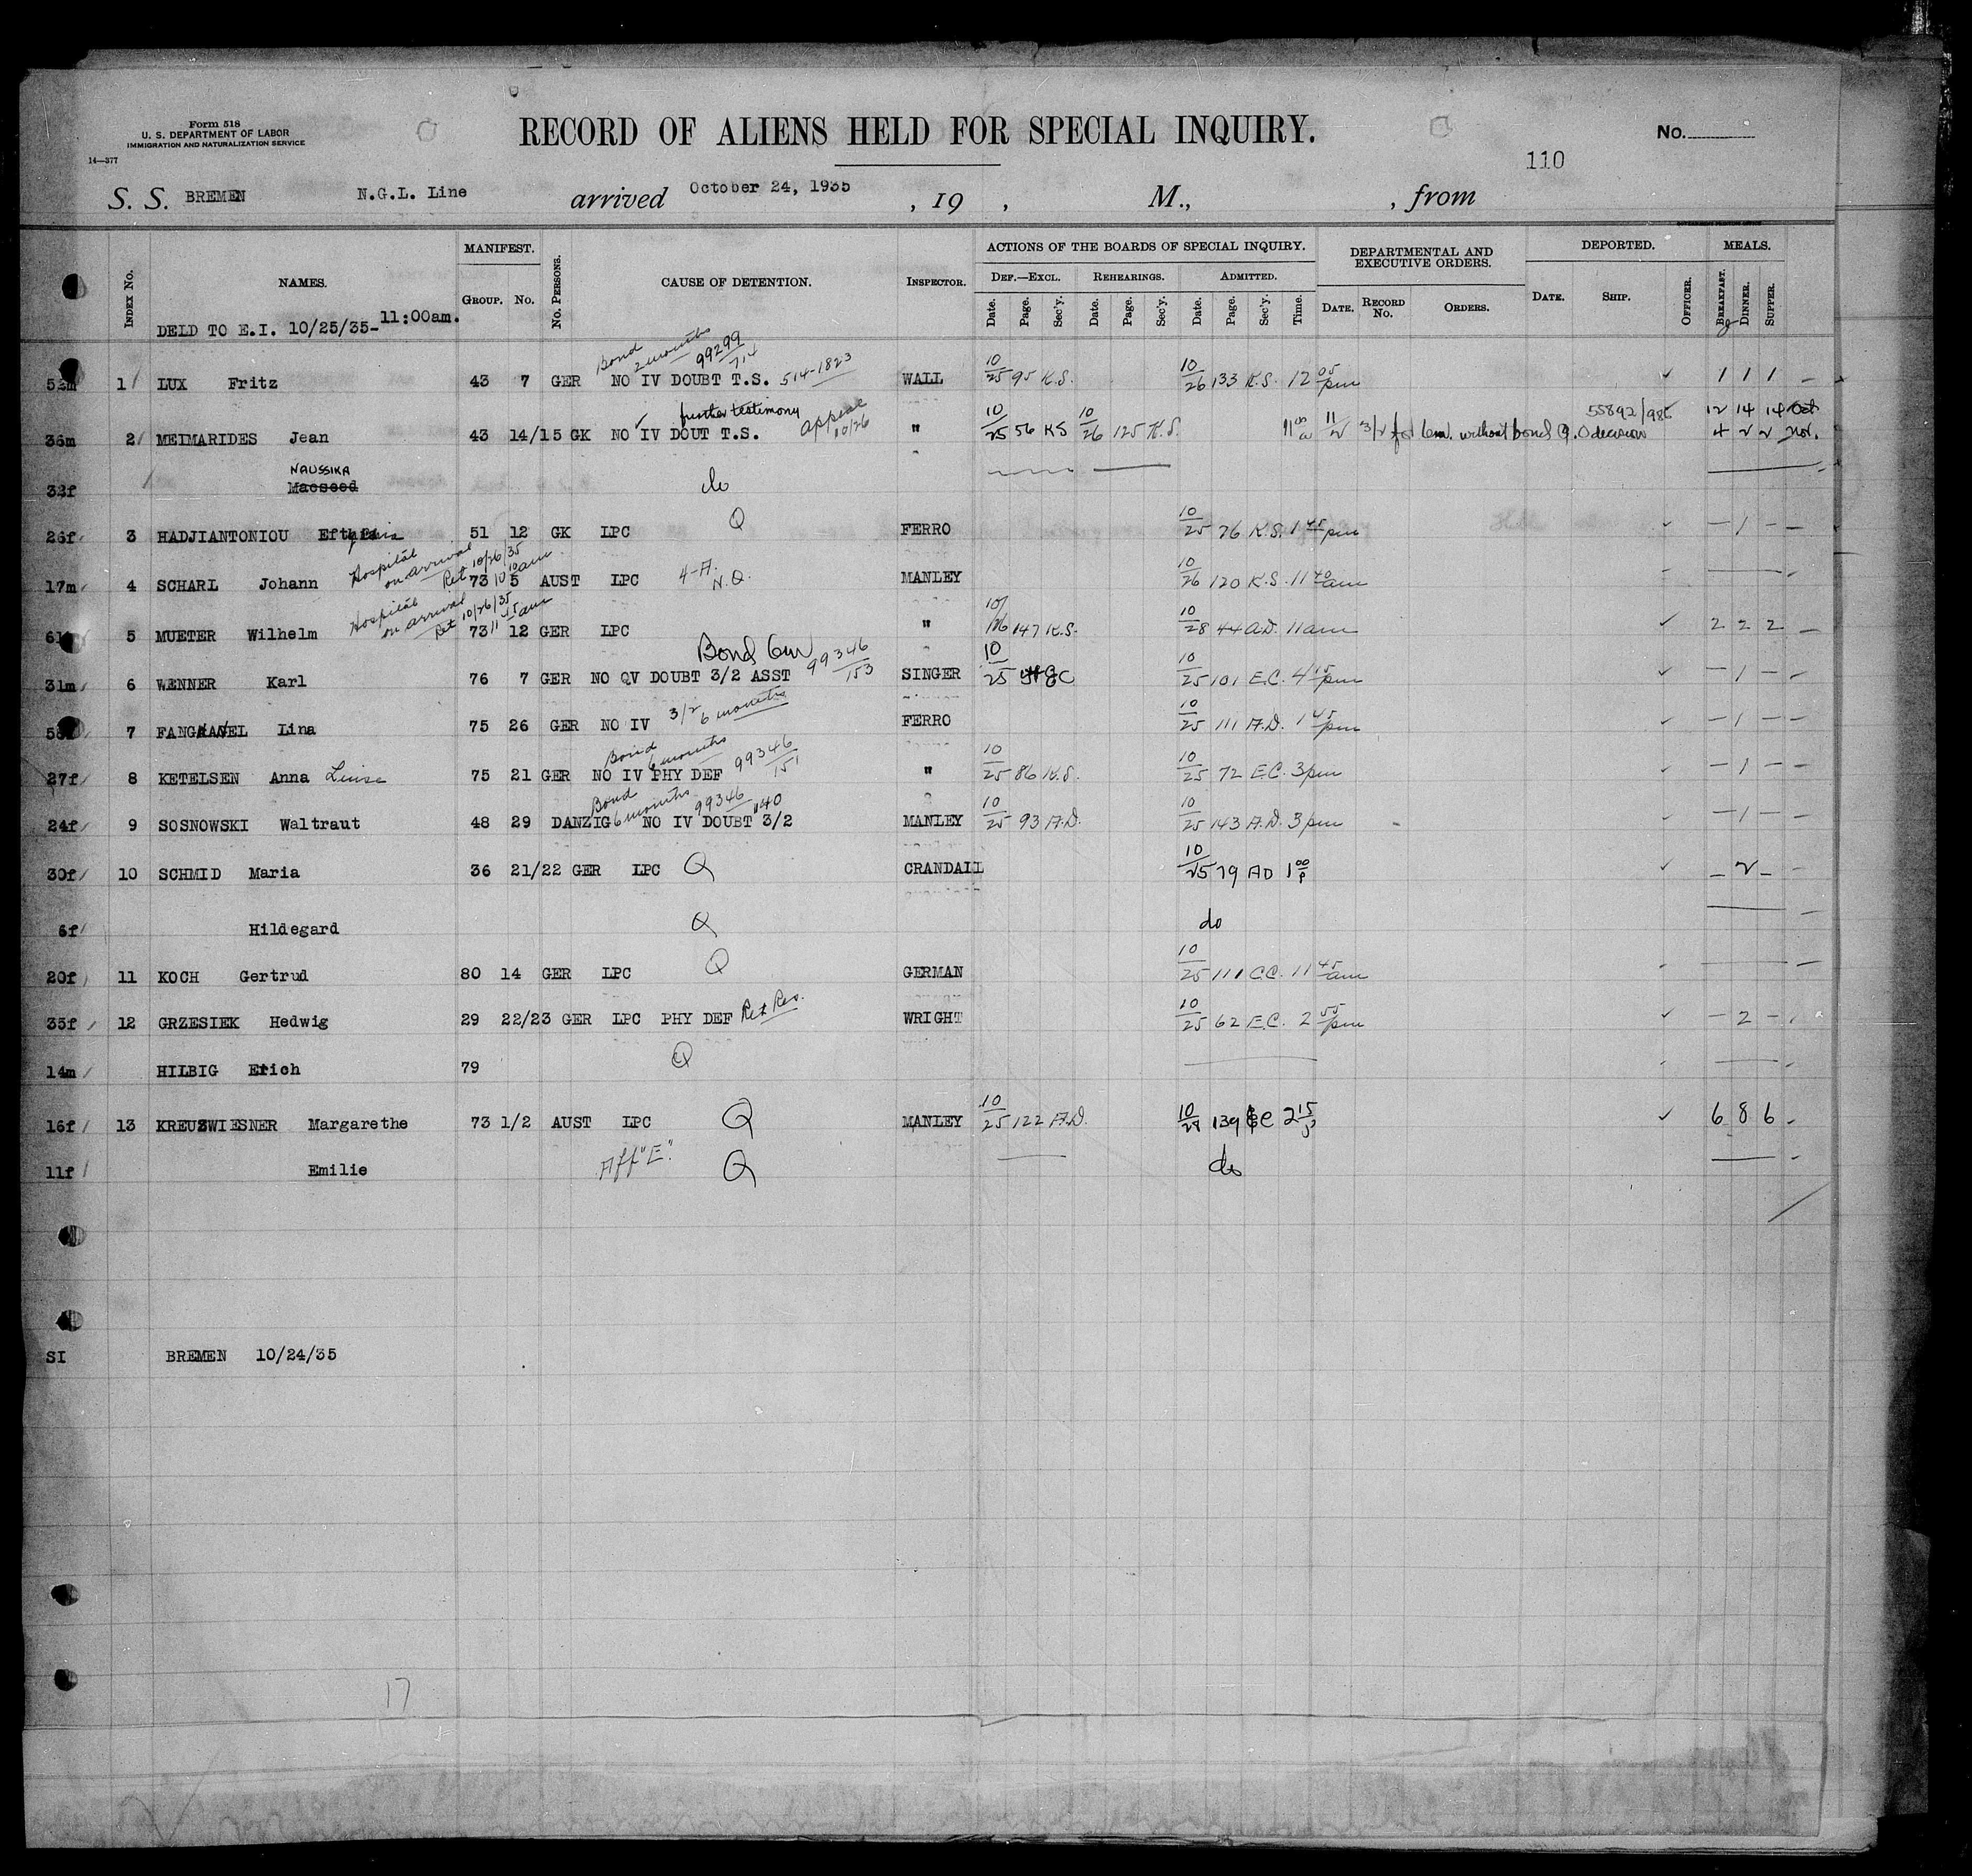 Form 518
U. S. DEPARTMENT OF LABOR
IMMIGRATION AND NATURALIZATION SERVICE
14—377
RECORD OF ALIENS HELD FOR SPECIAL INQUIRY.
No.
110
S. S. BREMEN N.G.L. Line arrived October 24, 1935 , 19 , M., , from
GOVERNMENT PRINTING OFFICE
INDEX No. NAMES. MANIFEST. GROUP. No. No. PERSONS. CAUSE OF DETENTION. INSPECTOR. ACTIONS OF THE BOARDS OF SPECIAL INQUIRY. DEPARTMENTAL AND EXECUTIVE ORDERS. DEPORTED. MEALS.
DEF.—EXCL. REHEARINGS. ADMITTED.
Date. Page. Sec'y. Date. Page. Sec'y. Date. Page. Sec'y. Time. DATE. RECORD No. ORDERS. DATE. SHIP. OFFICER. BREAKFAST. DINNER. SUPPER.
DELD TO E.I. 10/25/35- 11:00am.
Bond 2 months 99299/714
52m 1 LUX Fritz 43 7 GER NO IV DOUBT T.S. 514-1823 WALL 10/25 95 K.S. 10/26 133 K.S. 12 05 pm 1 1 1
further testimony appeal 10/26 55892/985 12 14 14 Oct
36m 2 MEIMARIDES Jean 43 14/15 GK NO IV DOUT T.S. " 10/25 56 KS 10/26 125 K.S. 11 00 a 11/2 3/2 for 6m. without bond 4 2 2 Nov.
NAUSSIKA
32f Macseed do
26f 3 HADJIANTONIOU 51 12 GK LPC Q FERRO 10/25 76 K.S. 1 45 pm – 1 –
Hospital on arrival Ret 10/26/35 10 10 am
17m 4 SCHARL Johann 73 5 AUST LPC 4-A. N.Q. MANLEY 10/26 120 K.S. 11 40 am
Hospital on arrival Ret 10/26/35 11 45 am
5 MUETER Wilhelm 73 12 GER LPC " 10/26 147 K.S. 10/28 44 A.D. 11am 2 2 2
Bond 6m 99346/153
31m 6 WENNER Karl 76 7 GER NO QV DOUBT 3/2 ASST SINGER 10/25 10/25 101 E.C. 4 15 pm – 1 –
7 Lina 75 26 GER NO IV 3/2 6 months FERRO 10/25 111 A.D. 1 45 pm – 1 –
Bond 6 months 99346/151
27f 8 KETELSEN Anna Luise 75 21 GER NO IV PHY DEF " 10/25 86 K.S. 10/25 72 E.C. 3pm – 1 –
Bond 6 months 99346/140
24f 9 SOSNOWSKI Waltraut 48 29 DANZIG NO IV DOUBT 3/2 MANLEY 10/25 93 A.D. 10/25 143 A.D. 3pm – 1 –
30f 10 SCHMID Maria 36 21/22 GER LPC Q CRANDALL 10/25 79 AD 1 00 p – 2 –
6f Hildegard Q do
20f 11 KOCH Gertrud 80 14 GER LPC Q GERMAN 10/25 111 C.C. 11 45 am
35f 12 GRZESIEK Hedwig 29 22/23 GER LPC PHY DEF Ret Res. WRIGHT 10/25 62 E.C. 2 55 pm – 2 –
14m HILBIG Erich 79 Q
16f 13 KREUZWIESNER Margarethe 73 1/2 AUST LPC Q MANLEY 10/25 122 A.D. 139 2 15 p 6 8 6
11f Emilie Aff "E". Q do
SI BREMEN 10/24/35
17